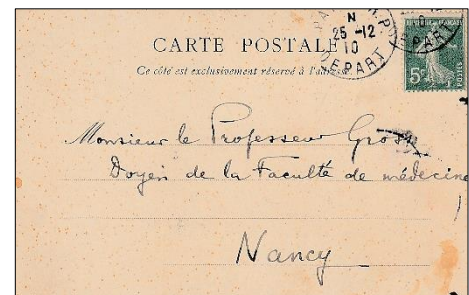 CARTE POSTALE
Ce côté est exclusivement réservé à l'adresse.
N
25 -12
10
DEPART
DEPART
5c
POSTES
Monsieur le Professeur Gross
Doyen de la Faculté de médecine
Nancy